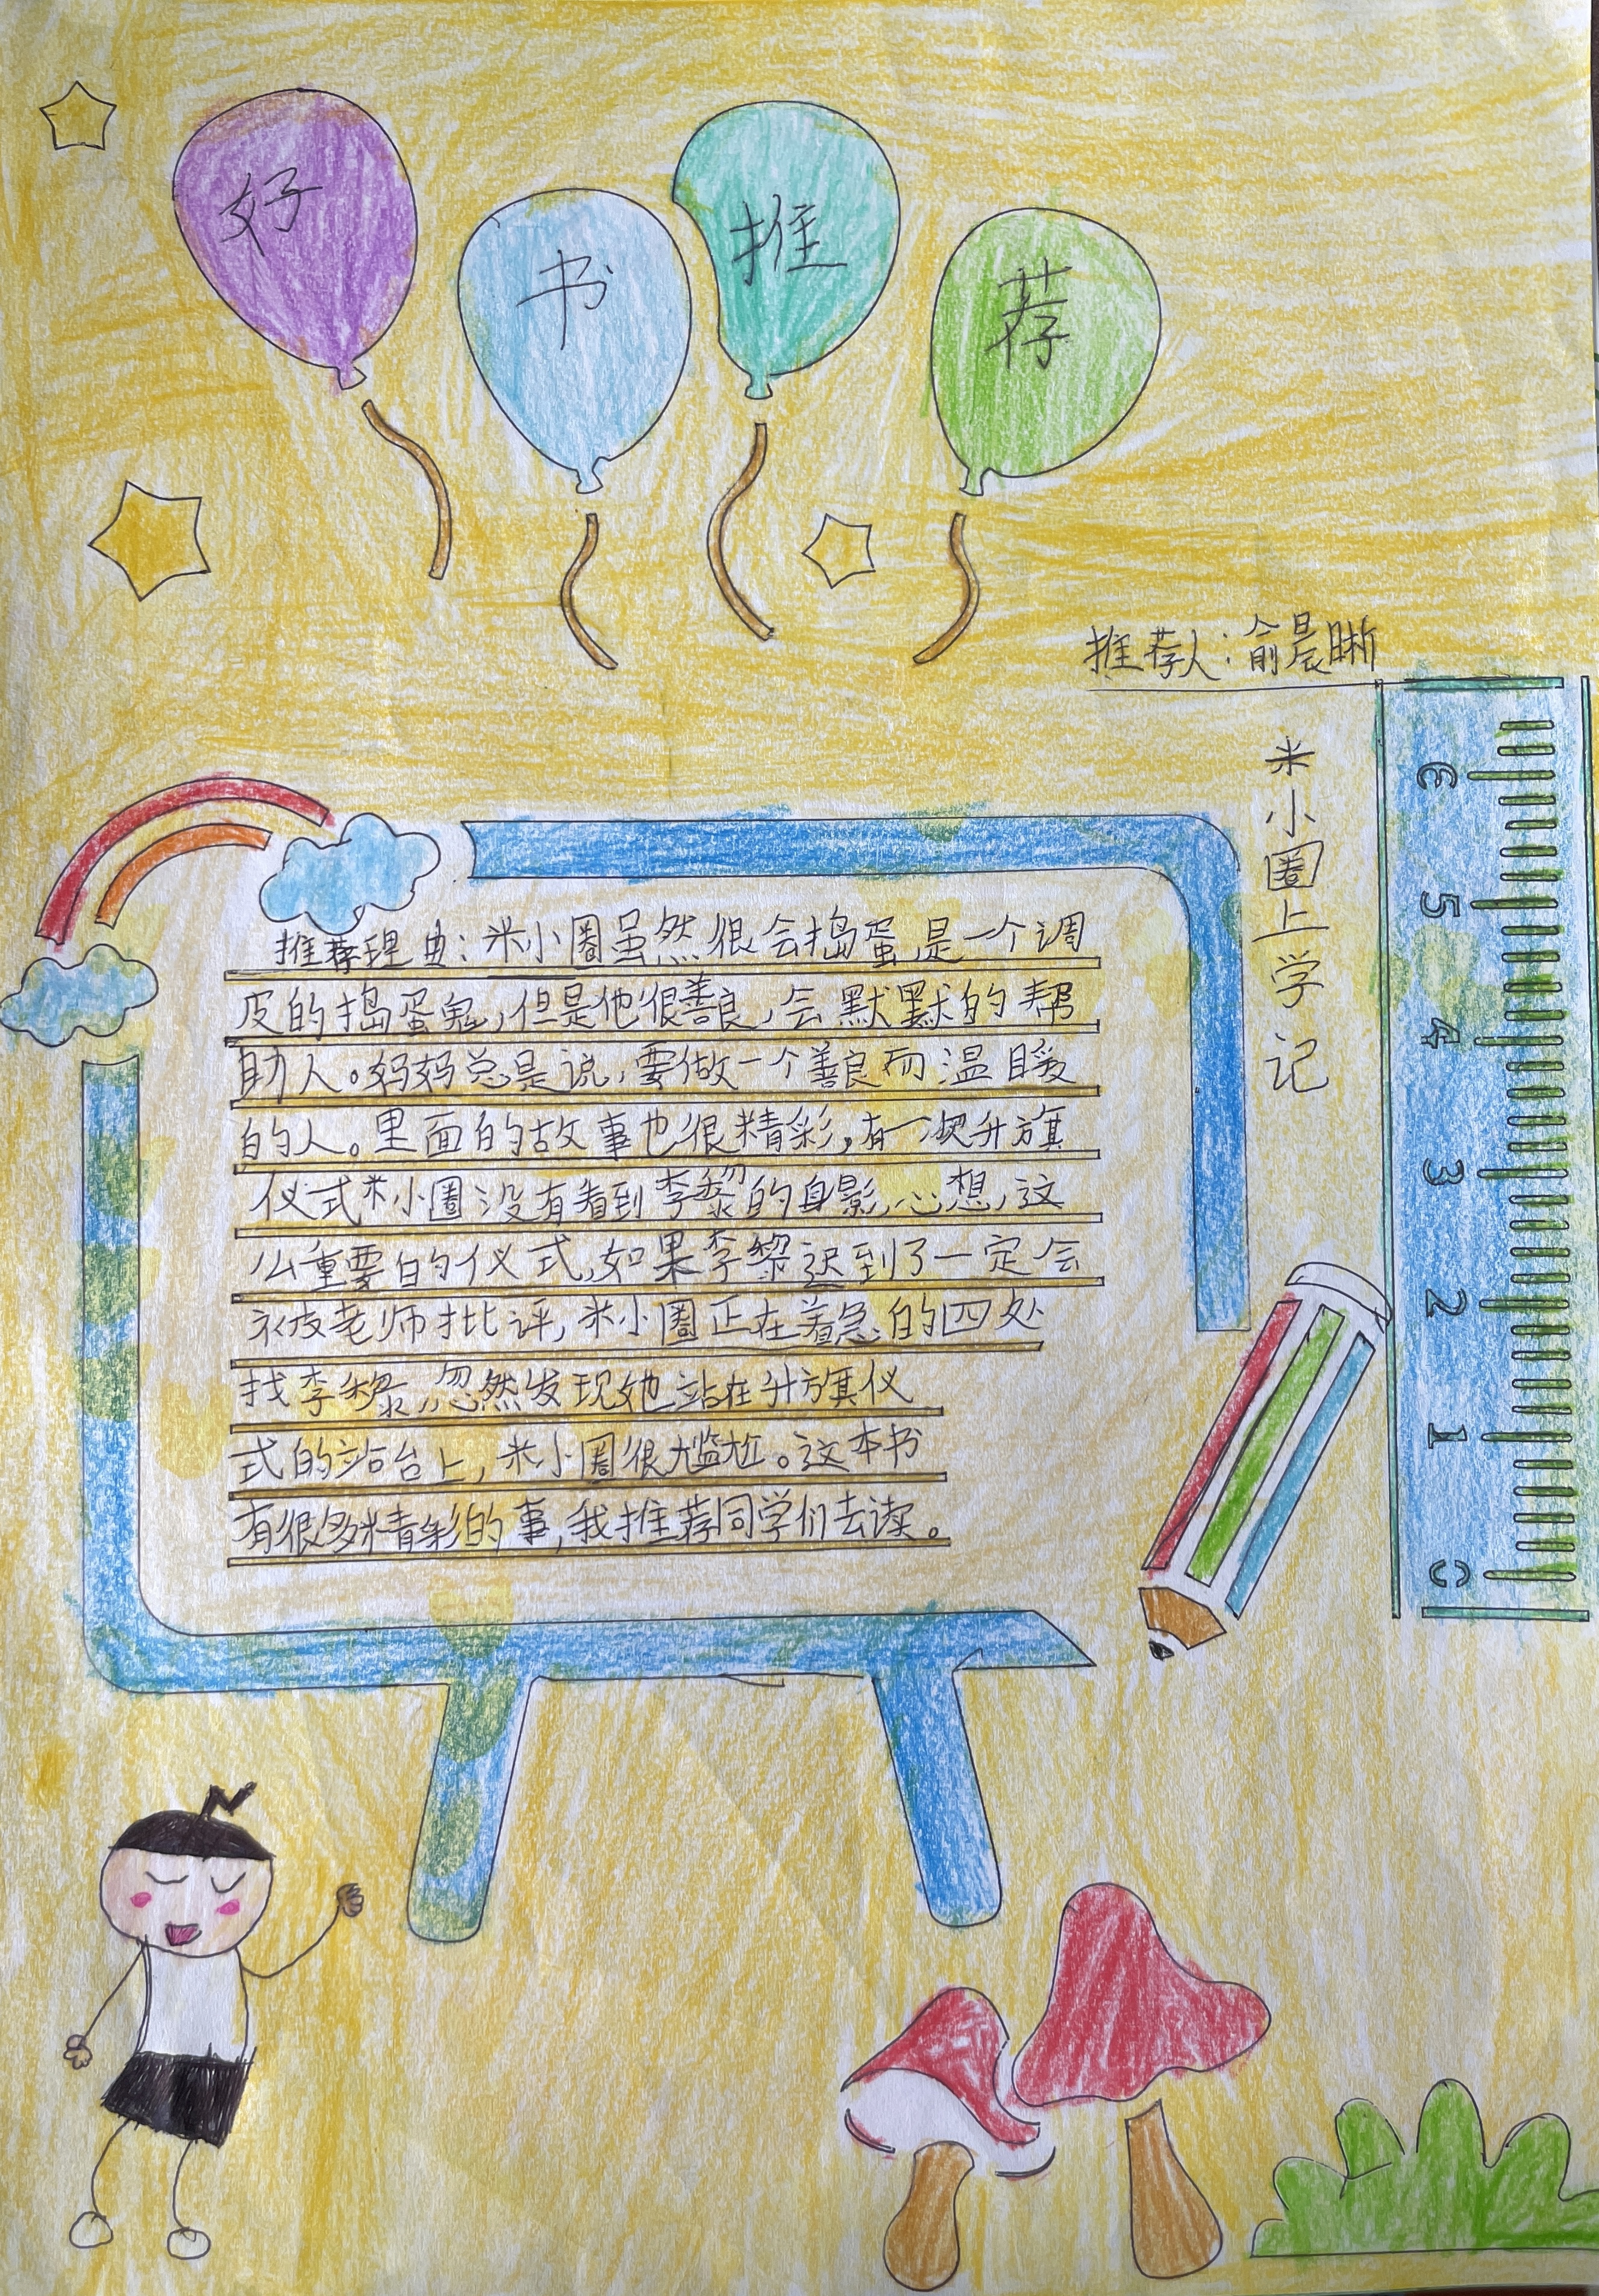 好书推荐
推荐人:俞晨晰
米小圈上学记
推荐理由:米小圈虽然很会捣蛋,是一个调
皮的捣蛋鬼,但是他很善良,会默默的帮
助人。妈妈总是说,要做一个善良而温暖
的人。里面的故事也很精彩,有一次升旗
仪式米小圈没有看到李黎的身影,心想,这
么重要的仪式,如果李黎迟到了一定会
被皮老师批评,米小圈正在着急的四处
找李黎,忽然发现她站在升旗仪
式的站台上,米小圈很尴尬。这本书
有很多精彩的事,我推荐同学们去读。
6
5
4
3
2
1
0